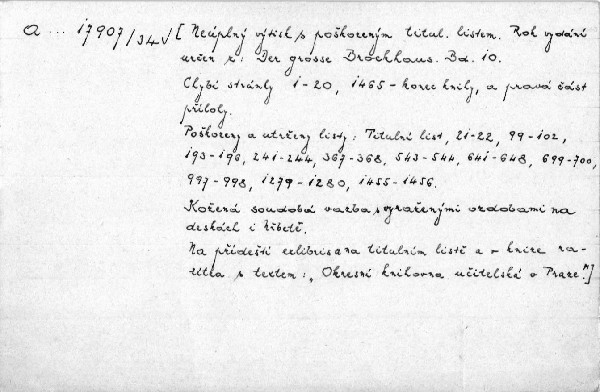 a ... 17907/34√ [Neúplný výtisk s poškozeným titul. listem. Rok vydání
určen z: Der grosse Brockhaus. Bd. 10.
Chybí stránky 1-20, 1465 - konec knihy, a pravá část
přílohy.
Poškozeny a utrženy listy: Titulní list, 21-22, 99-102,
193-196, 241-244, 367-368, 543-544, 641-648, 699-700,
997-998, 1279-1280, 1455-1456.
Kožená soudobá vazba s vyraženými ozdobami na
deskách i hřbetě.
Na přídeští exlibris a na titulním listě a v knize ra-
zítka s textem: „Okresní knihovna učitelská v Praze."]